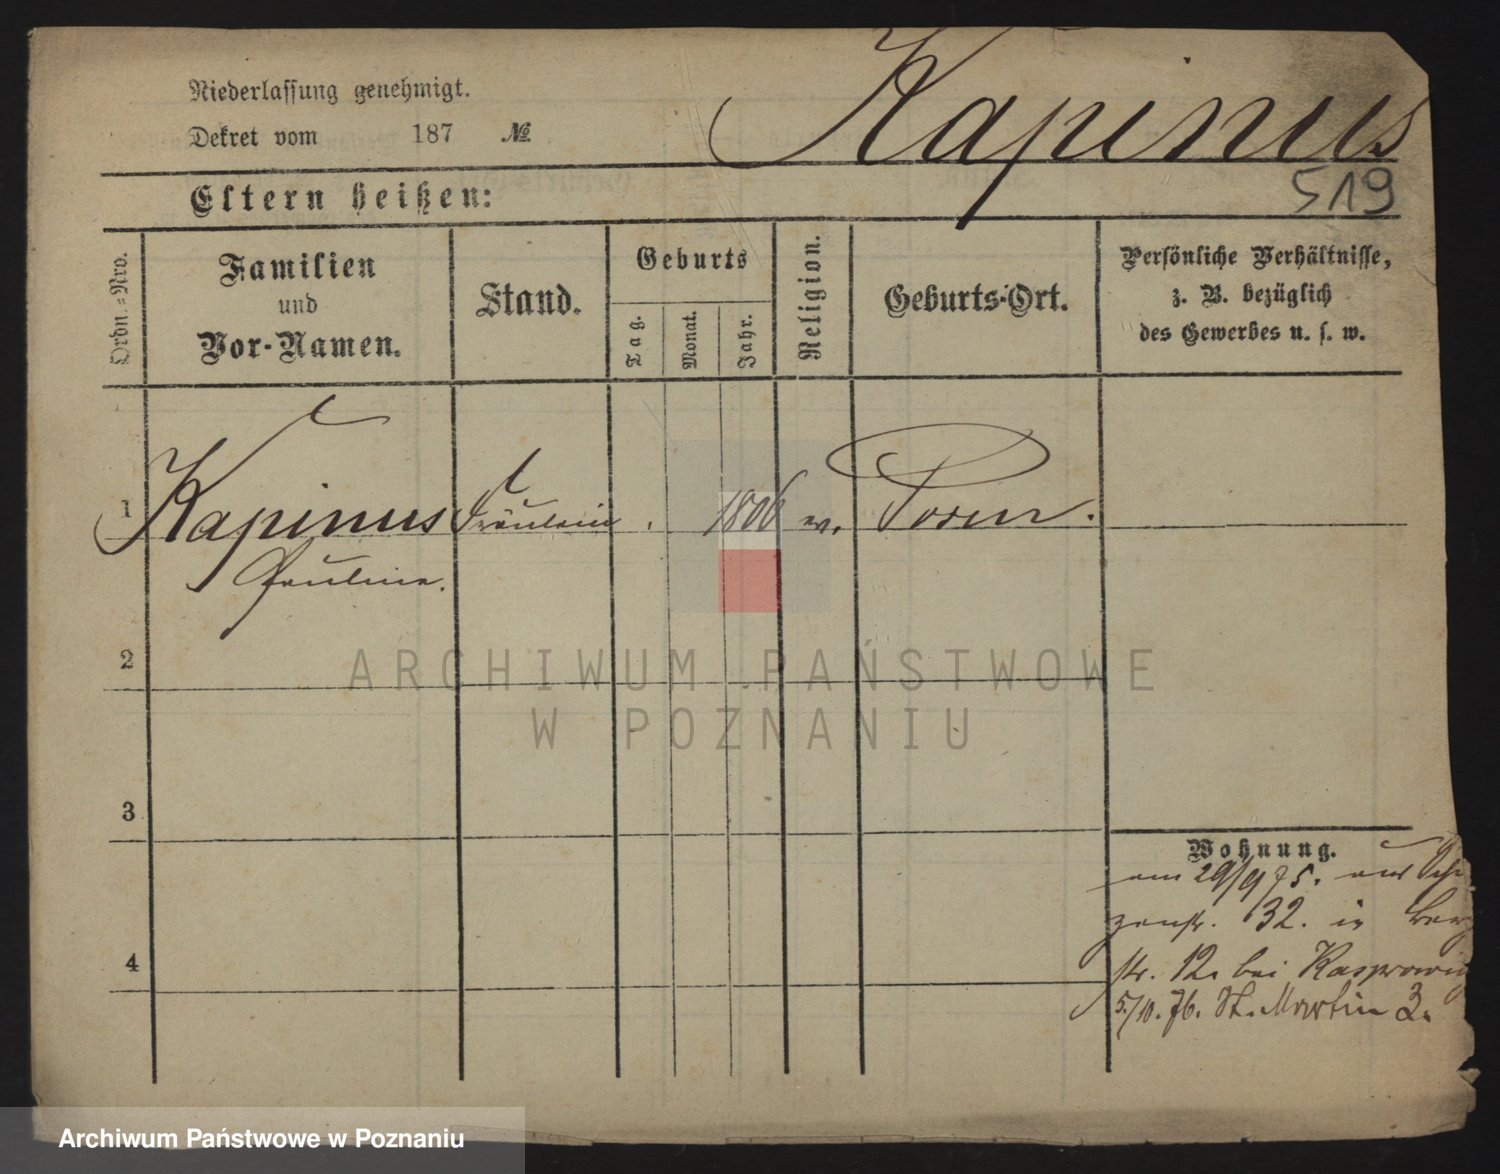 Niederlassung genehmigt.
Dekret vom 187 №
Kapinus
519
Eltern heißen:
Ordn.-Nro.
Familien
und
Vor-Namen.
Stand.
Geburts
Tag.
Monat.
Jahr.
Religion.
Geburts-Ort.
Persönliche Verhältnisse,
z. B. bezüglich
des Gewerbes u. s. w.
1 Kapinus Fräulein 1806 ev. Posen.
Pauline.
2
3
4
Wohnung.
am 29/9 75. aus
32. in
str. 12. bei
5/10. 76. St. Martin 3.
ARCHIWUM PAŃSTWOWE
W POZNANIU
Archiwum Państwowe w Poznaniu